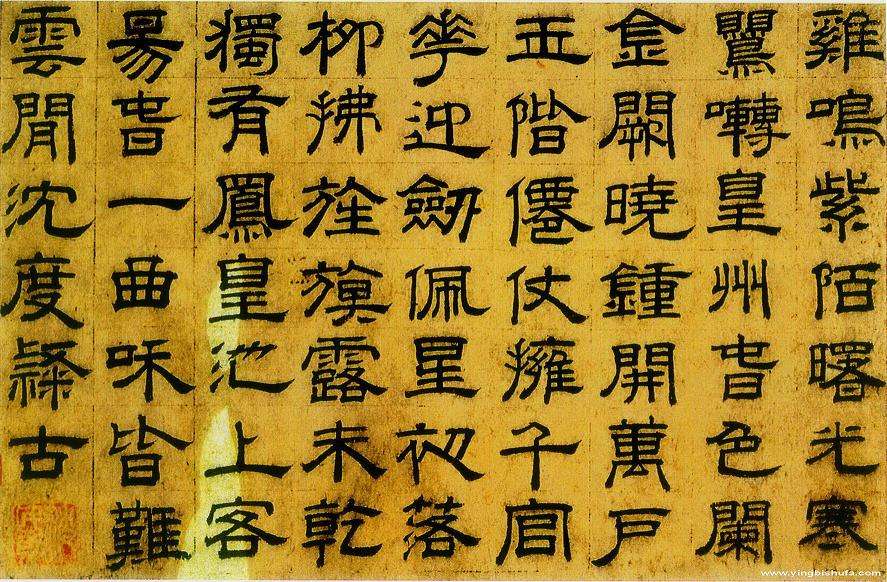 雞鳴紫陌曙光寒
鸎囀皇州旾色闌
金闕曉鍾開萬戶
玉階僊仗擁千官
華迎劒佩星初落
柳拂旌旗露未乾
獨有鳳皇池上客
昜旾一曲咊皆難
雲閒沈度隸古
www.yingbishufa.com